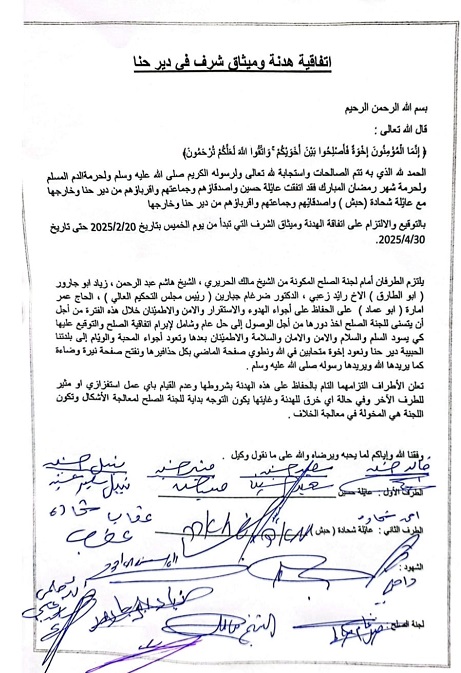 اتفاقية هدنة وميثاق شرف في دير حنا
بسم الله الرحمن الرحيم
قال الله تعالى :
﴿ إِنَّمَا الْمُؤْمِنُونَ إِخْوَةٌ فَأَصْلِحُوا بَيْنَ أَخَوَيْكُمْ ۚ وَاتَّقُوا اللَّهَ لَعَلَّكُمْ تُرْحَمُونَ﴾
الحمد لله الذي به تتم الصالحات واستجابة لله تعالى ولرسوله الكريم صلى الله عليه وسلم ولحرمةالدم المسلم
ولحرمة شهر رمضان المبارك فقد اتفقت عائلة حسين واصدقاؤهم وجماعتهم واقرباؤهم من دير حنا وخارجها
مع عائلة شحادة (حبش ) واصدقائهم وجماعتهم واقرباؤهم من دير حنا وخارجها
بالتوقيع والالتزام على اتفاقة الهدنة وميثاق الشرف التي تبدأ من يوم الخميس بتاريخ 2025/2/20 حتى تاريخ
2025/4/30.
يلتزم الطرفان أمام لجنة الصلح المكونة من الشيخ مالك الحريري ، الشيخ هاشم عبد الرحمن ، زياد ابو جارور
( ابو الطارق ) الاخ رائد زعبي ، الدكتور ضرغام جبارين ( رئيس مجلس التحكيم العالي ) ، الحاج عمر
امارة ( ابو عماد ) على الحفاظ على أجواء الهدوء والاستقرار والامن والاطمئنان خلال هذه الفترة من أجل
أن يتسنى للجنة الصلح اخذ دورها من أجل الوصول إلى حل عام وشامل لإبرام اتفاقية الصلح والتوقيع عليها
كي يسود السلم والسلام والامن والامان والسلامة والاطمئنان بعدها وتعود أجواء المحبة والوئام إلى بلدتنا
الحبيبة دير حنا ونعود إخوة متحابين في الله ونطوي صفحة الماضي بكل حذافيرها ونفتح صفحة نيرة وضاءة
كما يريدها الله ويريدها رسوله صلى الله عليه وسلم .
تعلن الأطراف التزامهما التام بالحفاظ على هذه الهدنة بشروطها وعدم القيام باي عمل استفزازي او مثير
للطرف الآخر وفي حالة اي خرق للهدنة وغايتها يكون التوجه بداية للجنة الصلح لمعالجة الأشكال وتكون
اللجنة هي المخولة في معالجة الخلاف .
وفقنا الله وإياكم لما يحبه ويرضاه والله على ما نقول وكيل .
الطرف الأول : عائلة حسين
الطرف الثاني : عائلة شحادة ( حبش
الشهود :
لجنة الصلح